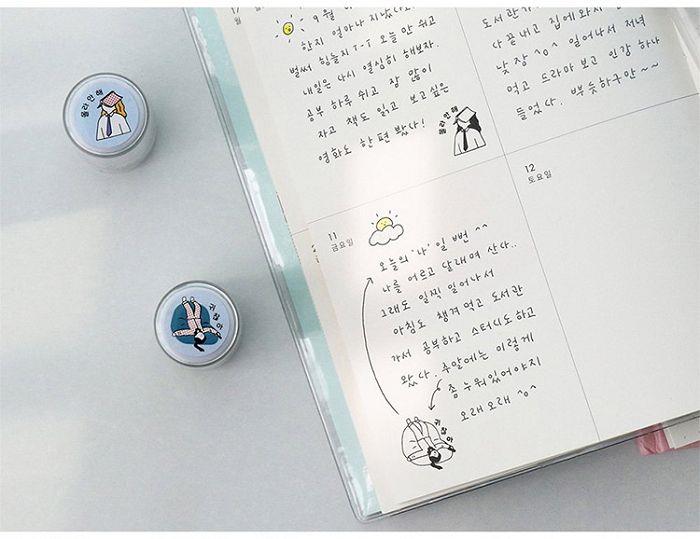 몰라안해
귀찮아
17
월
일
9월
한지 얼마나 지났다고
벌써 힘들지 T-T 오늘 안 쉬고
내일은 다시 열심히 해보자.
공부 하루 쉬고 잠 많이
자고 책도 읽고 보고싶은
영화도 한 편 봤다!
몰라안해
도서관
다 끝내고 집에와서
낮잠 ^o^ 일어나서 저녁
먹고 드라마 보고 인강 하나
들었다. 뿌듯하구만~~
11
금요일
오늘의 '나' 일 뻔 ^^
나를 어르고 달래며 산다..
그래도 일찍 일어나서
아침도 챙겨 먹고 도서관
가서 공부하고 스터디도하고
왔다. 주말에는 이렇게
좀 누워있어야지
오래오래 ^o^
귀찮아
12
토요일